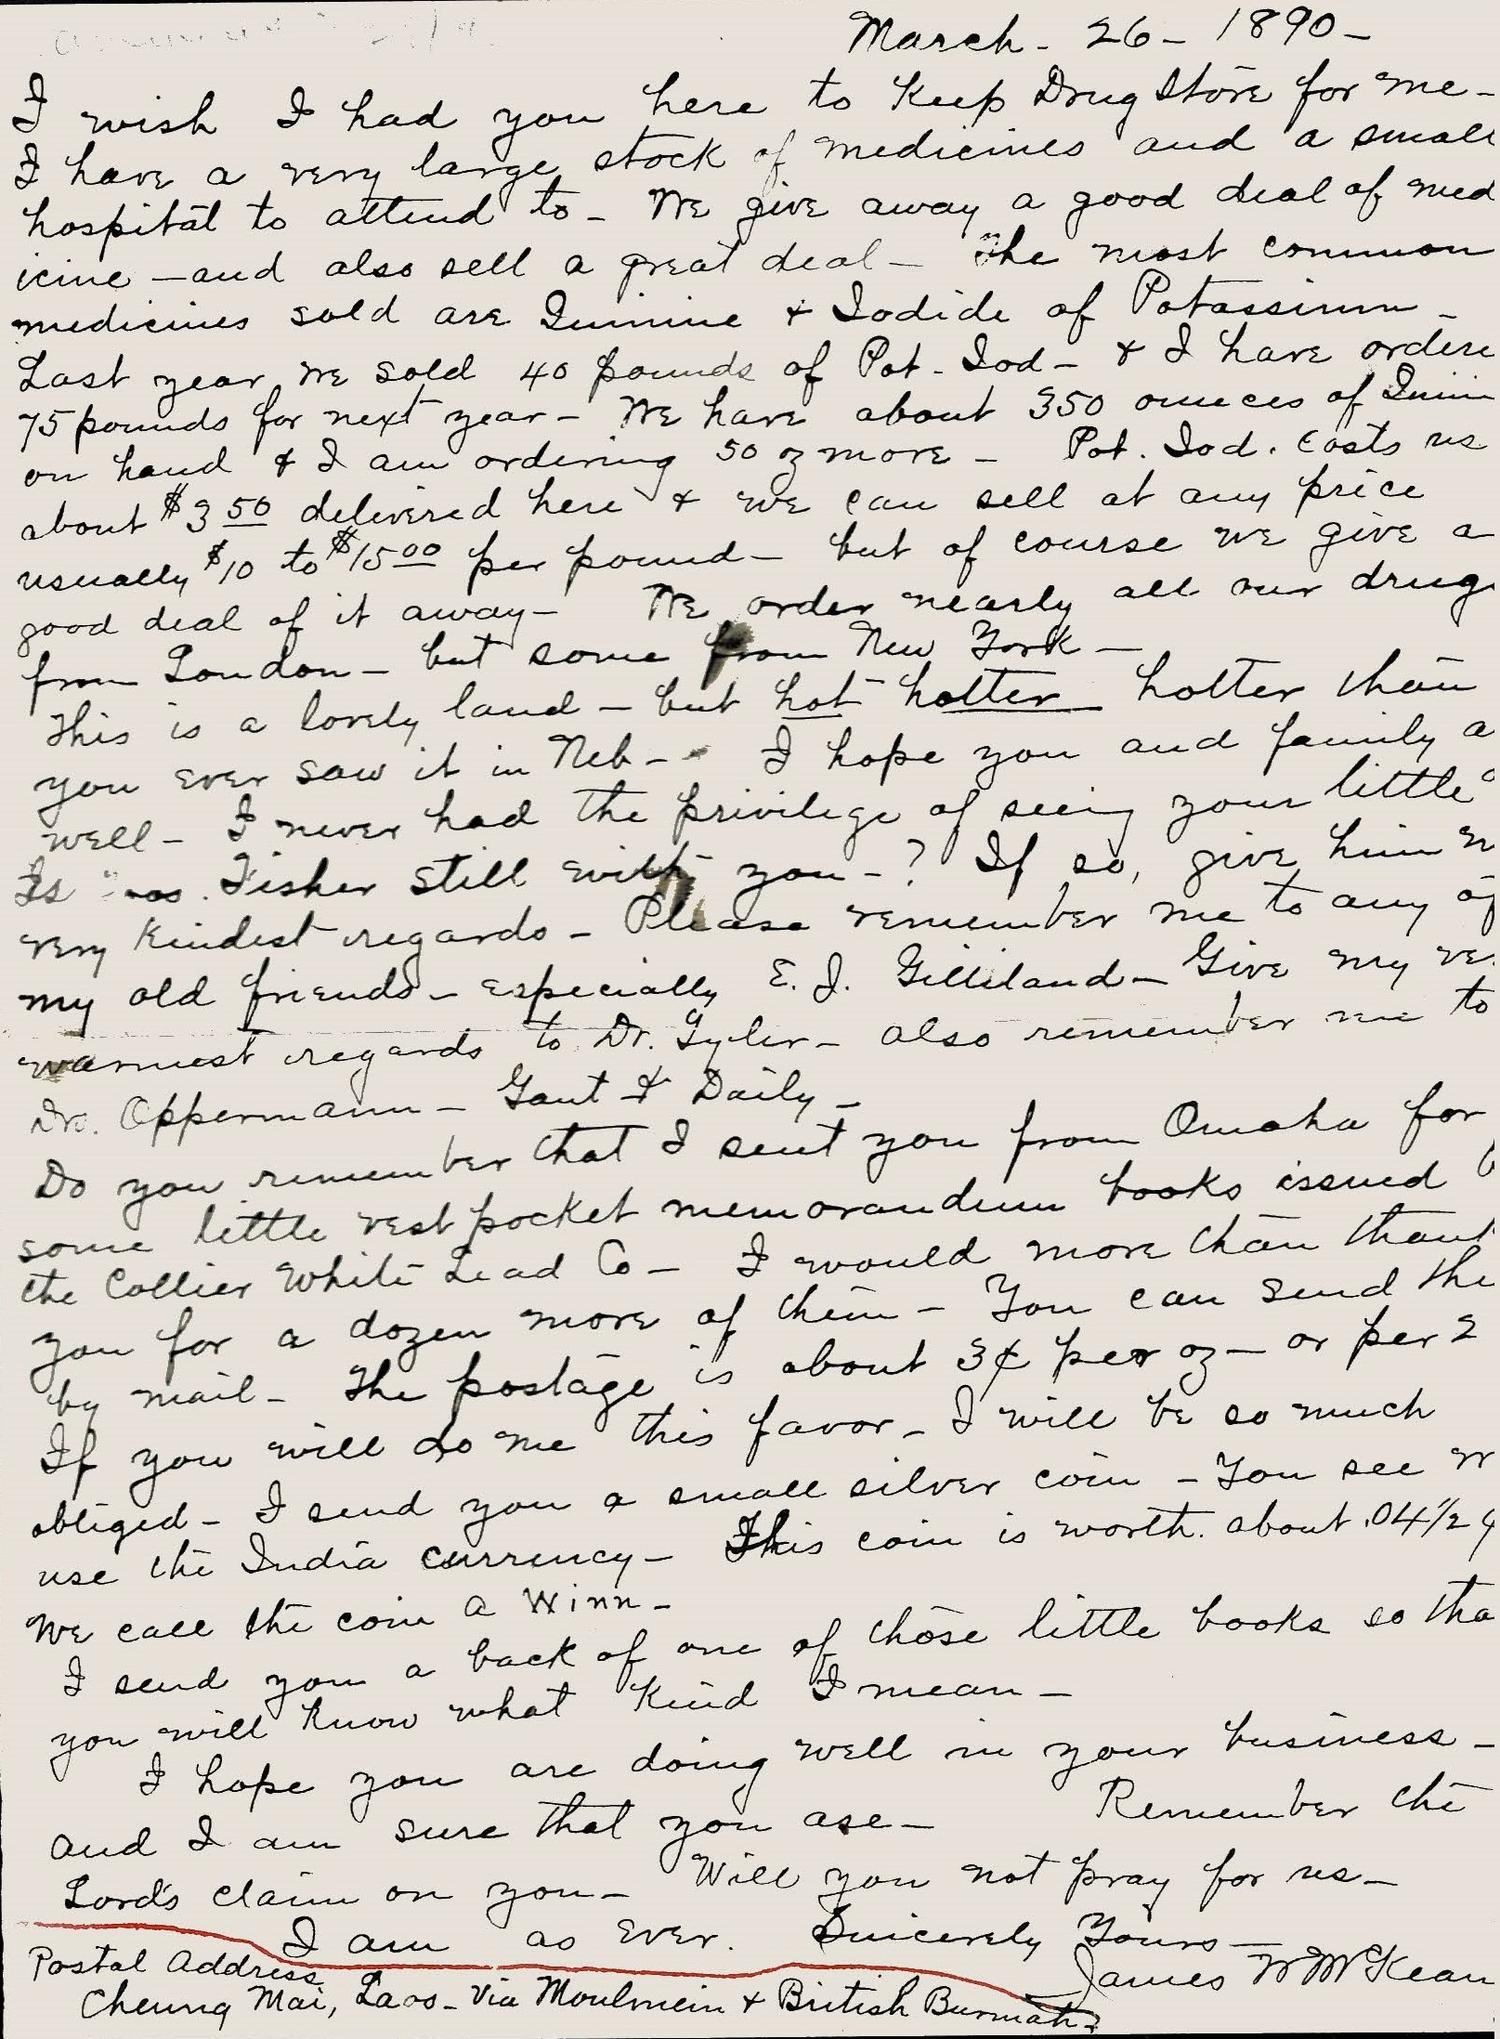 March - 26 - 1890 -
I wish I had you here to keep Drug Store for me -
I have a very large stock of medicines and a small
hospital to attend to - We give away a good deal of med
icine - and also sell a great deal - The most common
medicines sold are Quinine & Iodide of Potassium -
Last year we sold 40 pounds of Pot. Iod - & I have ordere
75 pounds for next year - We have about 350 ounces of Quinin
on hand & I am ordering 50 oz more - Pot. Iod. costs us
about $3 50 delivered here & we can sell at any price
usually $10 to $15 00 per pound - but of course we give a
good deal of it away - We order nearly all our drug
from London - but some from New York -
This is a lovely land - but hot hotter hotter than
you ever saw it in Neb - I hope you and family a
well - I never had the privilege of seeing your little
Is Fisher still with you - ? If so, give him m
very kindest regards - Please remember me to any of
my old friends - especially E. J. Gilliland - Give my ve
warmest regards to Dr. Tyler - also remember me to
Dr. Oppermann - Gant & Daily -
Do you remember that I sent you from Omaha for
some little vest pocket memorandum books issued b
the Collier White Lead Co - I would more than thank
you for a dozen more of them - You can send the
by mail - The postage is about 3¢ per oz - or per 2
If you will do me this favor - I will be so much
obliged - I send you a small silver coin - You see w
use the India currency - This coin is worth about .04 1/2 ¢
We call the coin a Winn -
I send you a back of one of those little books so tha
you will know what kind I mean -
I hope you are doing well in your business -
and I am sure that you are - Remember the
Lord's claim on you - Will you not pray for us -
I am as ever. Sincerely Yours -
James W McKean
Postal Address
Cheung Mai, Laos - Via Moulmein & British Burmah -